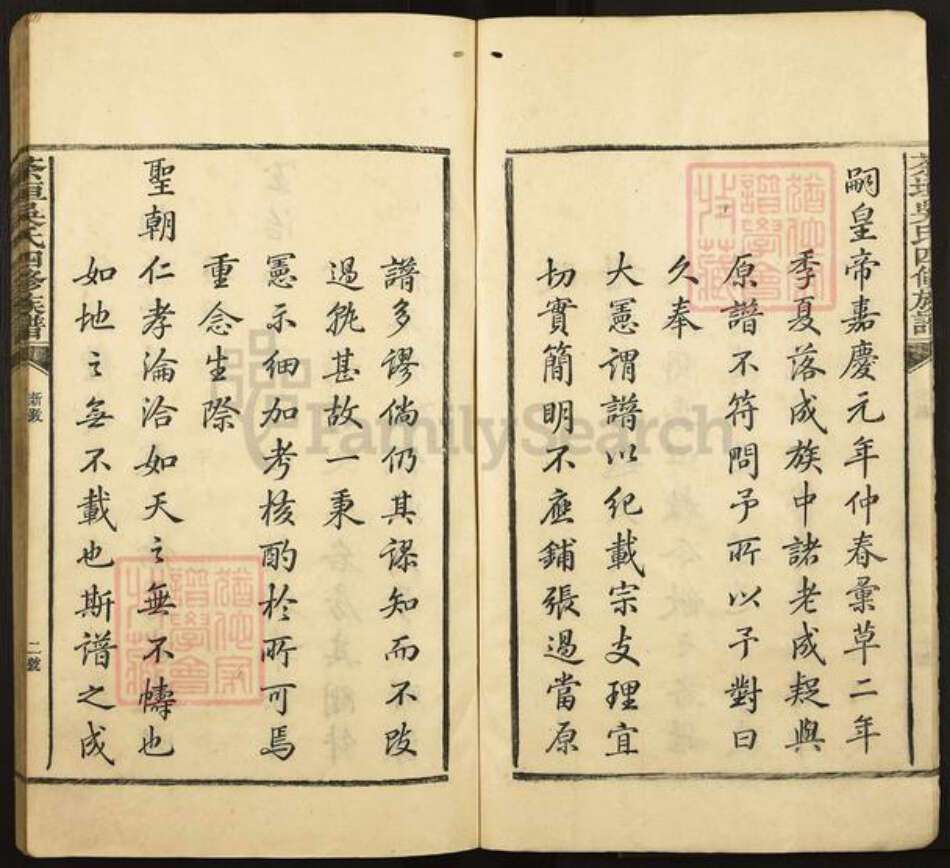 嗣皇帝嘉慶元年仲春彙草二年
季夏落成族中諸老成疑與
原譜不符問予所以予對曰
久奉
大憲謂譜以紀載宗支理宜
切實簡明不應鋪張過當原
譜多謬倘仍其謬知而不改
過孰甚故一秉
憲示細加考核酌於所可焉
重念生際
聖朝仁孝淪洽如天之無不幬也
如地之無不載也斯譜之成
吳氏四修族譜
新鐫
二號
FamilySearch